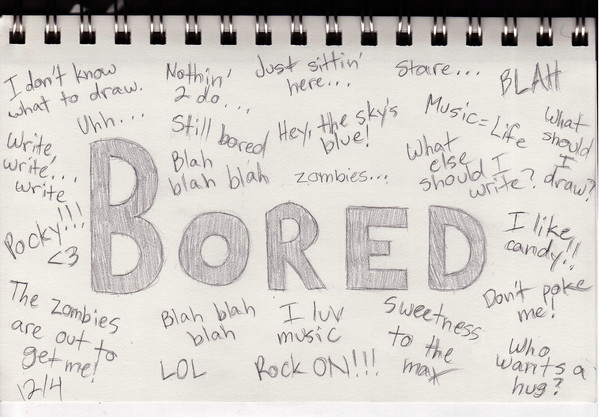 I don't know
what to draw.
Nothin'
2 do...
Just sittin'
here...
Stare...
BLAH
Uhh...
Still bored
Hey, the sky's
blue!
Music = Life
What
should
I
draw?
Write,
write,...
write
Blah
blah blah
zombies...
What
else
should I
write?
Pocky!!!
<3
BORED
I like
candy!!
Don't poke
me!
The zombies
are out to
get me!
12/4
Blah blah
blah
LOL
I luv
music
Rock ON!!!
Sweetness
to the
max
Who
wants a
hug?